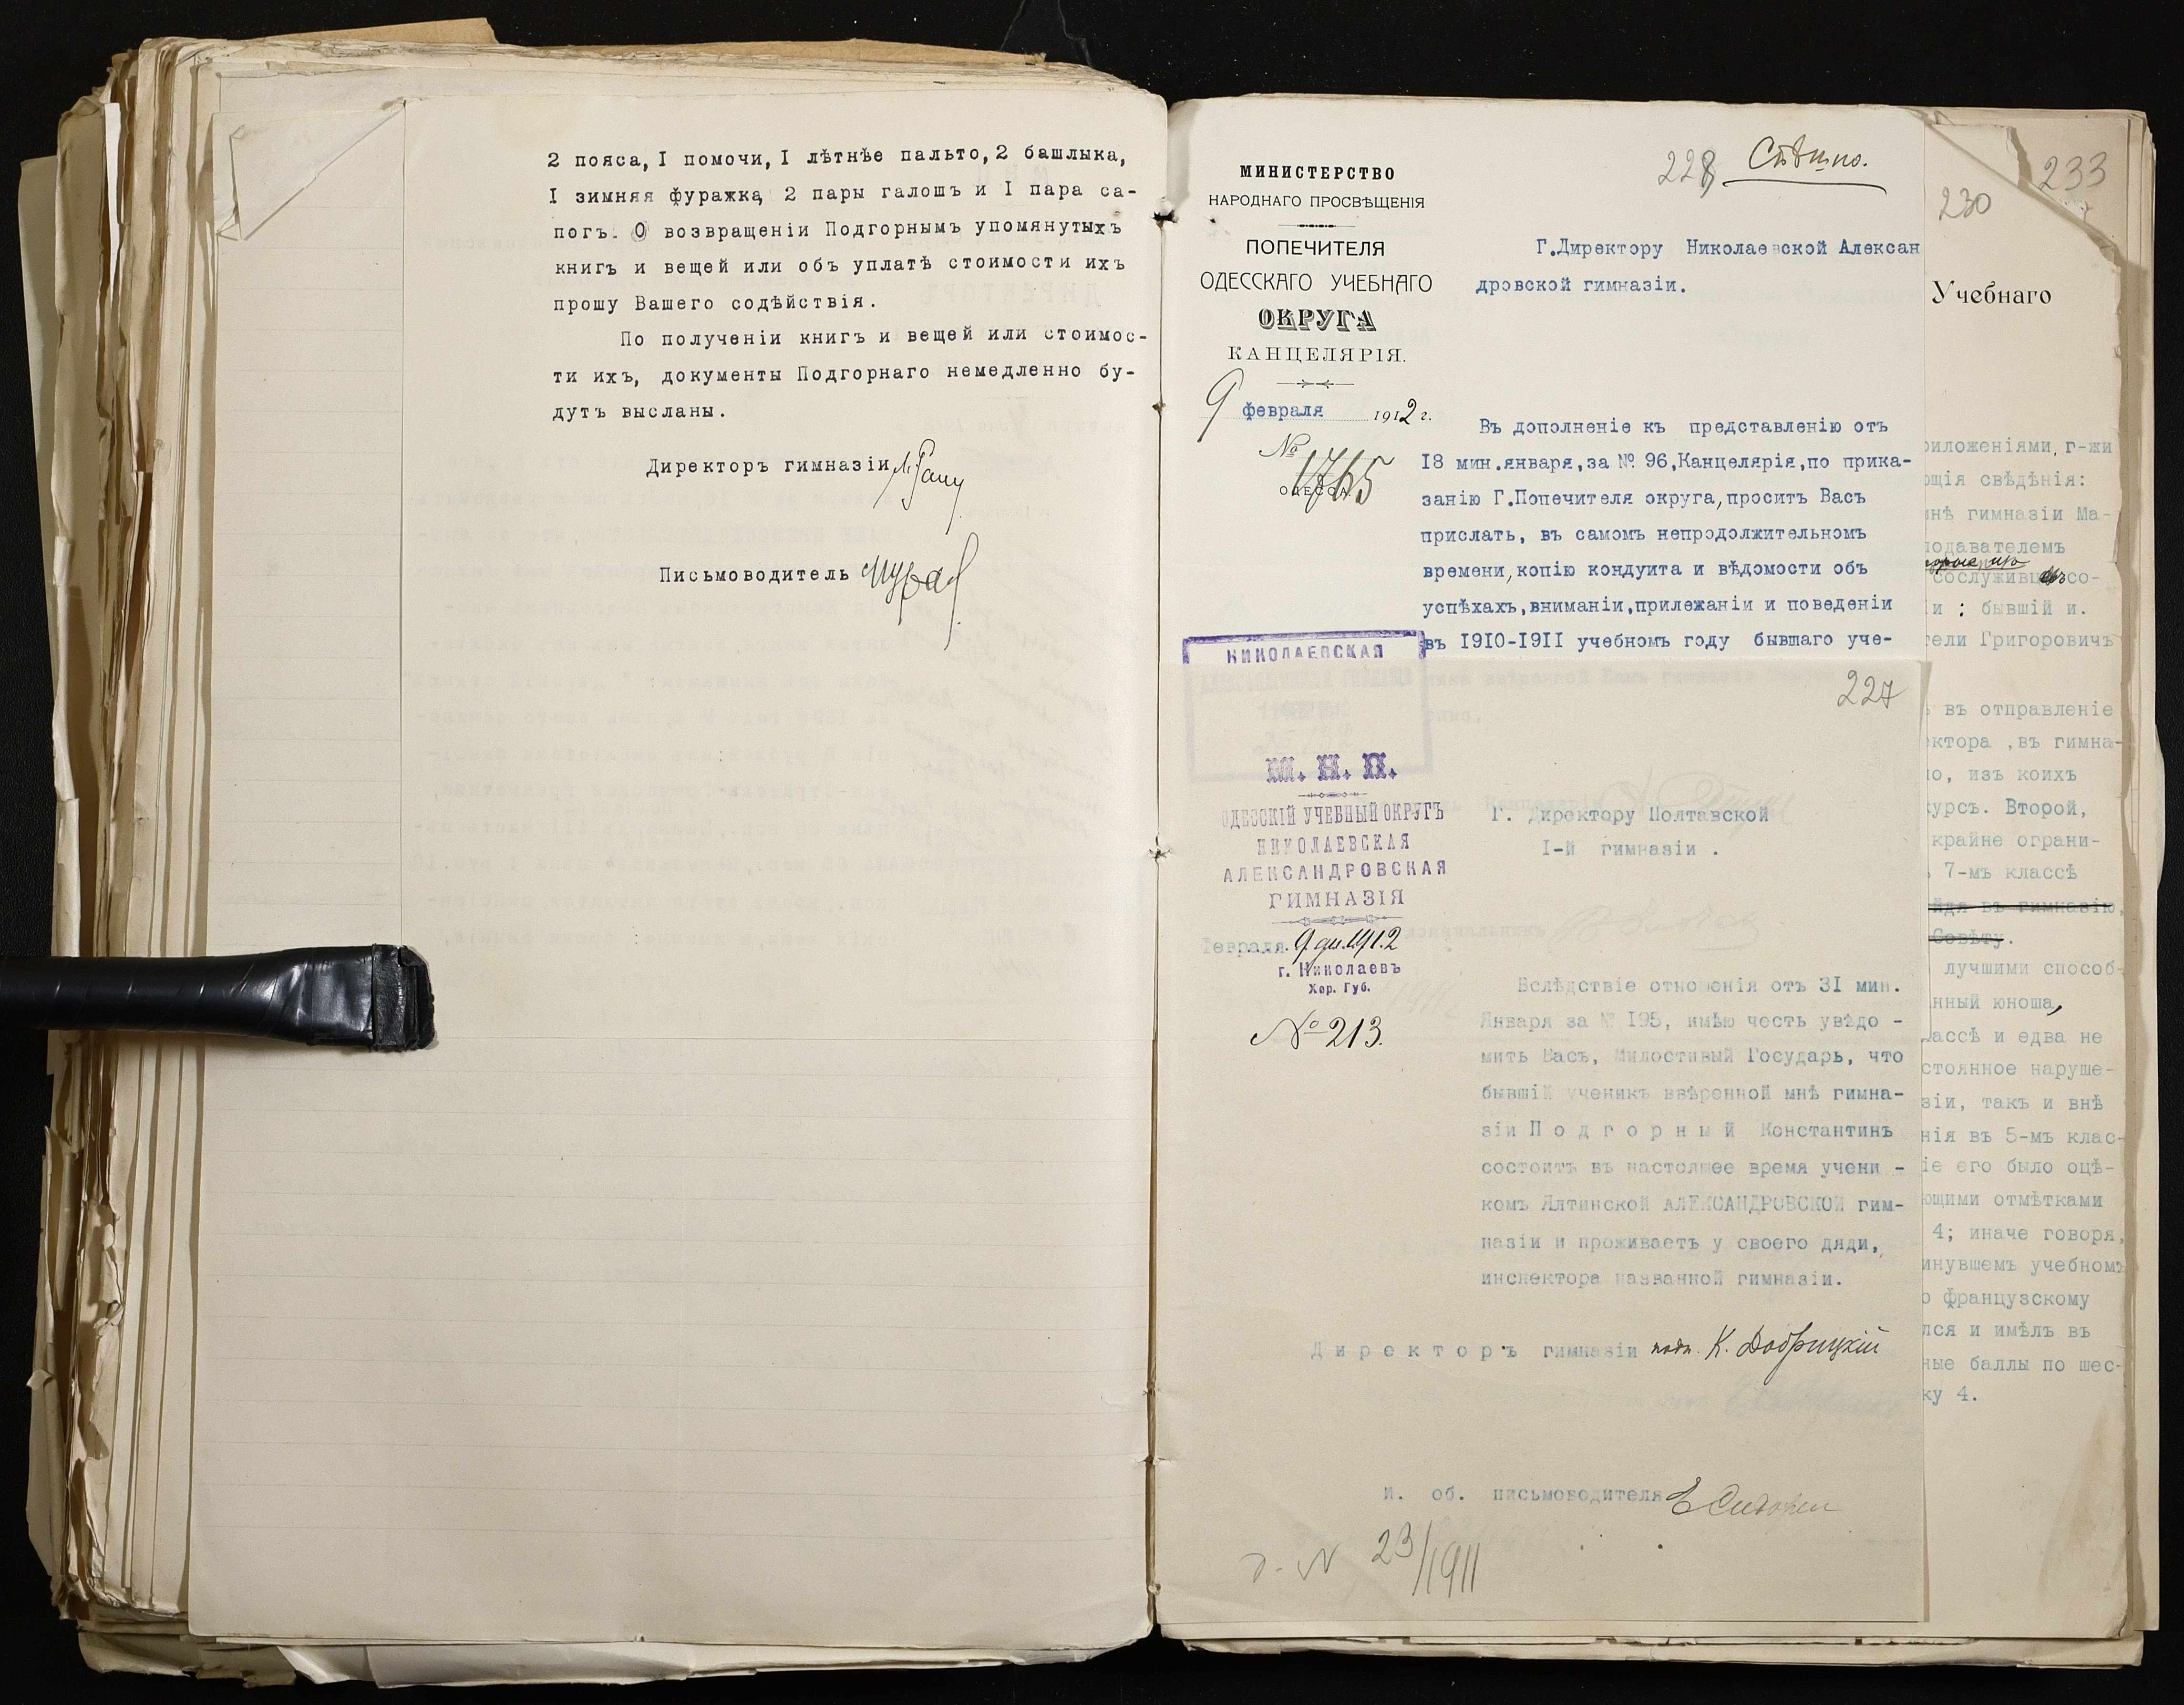 2 пояса, I помочи, I лѣтнѣе пальто, 2 башлыка,
I зимняя фуражка, 2 пары галошъ и I пара са-
погъ. О возвращеніи Подгорнымъ упомянутыхъ
книгъ и вещей или объ уплатѣ стоимости ихъ
прошу Вашего содѣйствія.
По полученіи книгъ и вещей или стоимос-
ти ихъ, документы Подгорнаго немедленно бу-
дутъ высланы.
Директоръ гимназіи
Письмоводитель
228
Спѣшно.
МИНИСТЕРСТВО
НАРОДНАГО ПРОСВѢЩЕНІЯ
ПОПЕЧИТЕЛЯ
ОДЕССКАГО УЧЕБНАГО
ОКРУГА
КАНЦЕЛЯРІЯ.
9 февраля 1912 г.
№ 1765
ОДЕССА.
Г.Директору Николаевской Алексан
дровской гимназіи.
Въ дополненіе къ представленію отъ
I8 мин.января, за № 96, Канцелярія, по прика-
занію Г.Попечителя округа, проситъ Васъ
прислать, въ самомъ непродолжительномъ
времени, копію кондуита и вѣдомости объ
успѣхахъ, вниманіи, прилежаніи и поведеніи
въ I9I0-I9II учебномъ году бывшаго уче-
НИКОЛАЕВСКАЯ
227
М. Н. П.
ОДЕССКІЙ УЧЕБНЫЙ ОКРУГЪ
НИКОЛАЕВСКАЯ
АЛЕКСАНДРОВСКАЯ
ГИМНАЗІЯ
Февраля 9 дн. 1912
г. Николаевъ
Хер. Губ.
№ 213.
Г. Директору Полтавской
I-й гимназіи .
Вслѣдствіе отношенія отъ 3I мин.
Января за № I95, имѣю честь увѣдо -
мить Васъ, Милостивый Государь, что
бывшій ученикъ ввѣренной мнѣ гимна-
зіи П о д г о р н ы й Константинъ
состоитъ въ настоящее время учени -
комъ Ялтинской АЛЕКСАНДРОВСКОЙ гим-
назіи и проживаетъ у своего дяди,
инспектора названной гимназіи.
Д и р е к т о р ъ гимназіи подп. К. Добрицкій
И. об. письмоводителя
23/1911
230
233
Учебнаго
риложеніями, г-жи
ющія свѣдѣнія:
мнѣ гимназіи Ма-
подавателемъ
сослуживц со-
іи ; бывшій и.
тели Григоровичъ
ъ въ отправленіе
ектора ,въ гимна-
но, изъ коихъ
курсъ. Второй,
крайне ограни-
7-мъ классѣ
йдя въ гимназію,
Совѣту.
лучшими способ-
нный юноша,
лассѣ и едва не
стоянное наруше-
зіи, такъ и внѣ
нія въ 5-мъ клас-
іе его было оцѣ-
ющими отмѣтками
4; иначе говоря,
инувшемъ учебномъ
о французскому
лся и имѣлъ въ
ные баллы по шес-
ку 4.